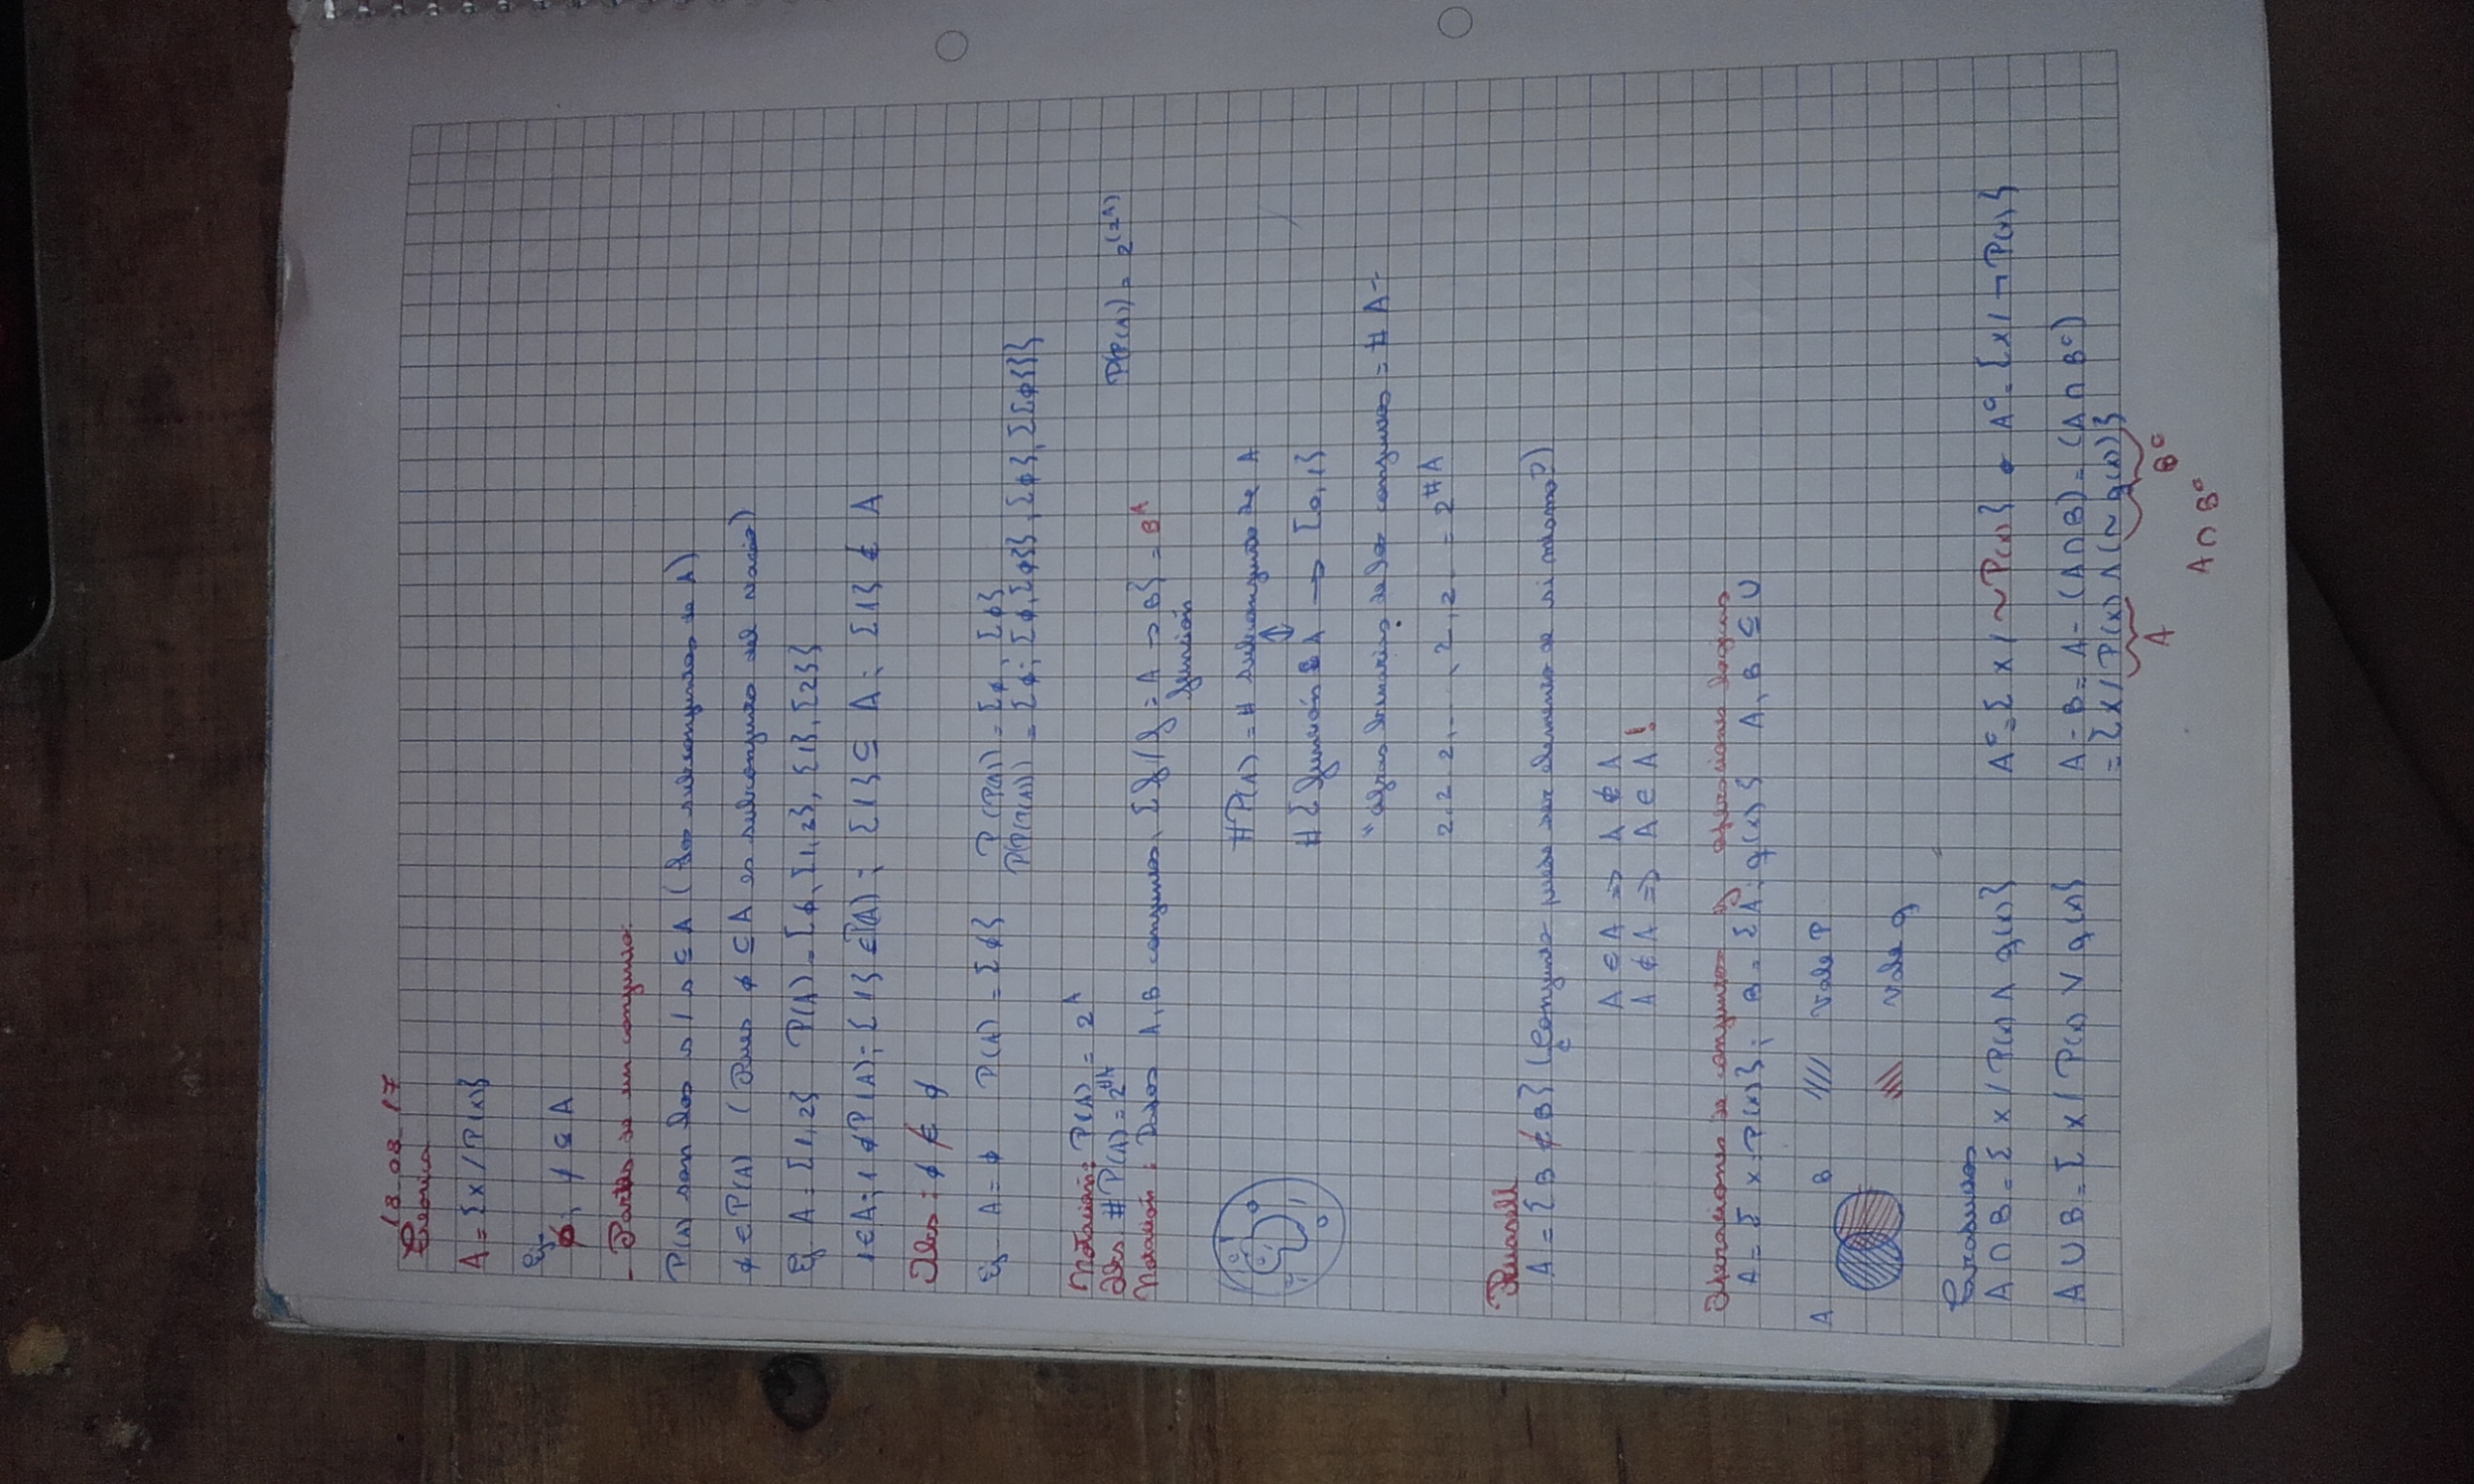 18-08-17
Teorica
A = {x / P(x)}
Ej-
ø, ø ⊆ A
- Partes de un conjunto:
P(A) son los s / s ⊆ A (los subconjuntos de A)
ø ∈ P(A) (Pues ø ⊆ A es subconjunto del vacio)
Ej A = {1,2} P(A) = {ø, {1,2}, {1}, {2}}
1 ∈ A; 1 ∉ P(A); {1} ∈ P(A); {1} ⊆ A; {1} ∉ A
Obs: ø ∉ ø
Ej A = ø P(A) = {ø} P(P(A)) = {ø, {ø}
P(P(P(A))) = {ø; {ø, {ø}}, {ø}, {{ø}}}
Notación: P(A) = 2^A
Obs #P(A) = 2^#A P(P(A)) = 2^(2^A)
Notación: Dados A, B conjuntos, {f / f: A → B} = B^A
función
#P(A) = # subconjunto de A
↕
# {función A → {0,1}
binarias de los conjuntos = # A
2.2.2.... .2.2. = 2^#A
Russell
A = {B ∉ B} (¿Conjunto puede ser elemento de si mismo?)
A ∈ A ⇒ A ∉ A
A ∉ A ⇒ A ∈ A !
Operaciones de conjuntos y operaciones logicas
A = {x: P(x)}; B = {A: q(x)} A, B ⊆ U
A B //// Vale P
\\\\ Vale q
A ∩ B = {x / P(x) ∧ q(x)} A^c = {x / ~P(x)} o A^c = {x / ¬P(x)}
A ∪ B = {x / P(x) ∨ q(x)} A - B = A - (A ∩ B) = (A ∩ B^c)
= {x / P(x) ∧ (~q(x))}
A B^c
A ∩ B^c